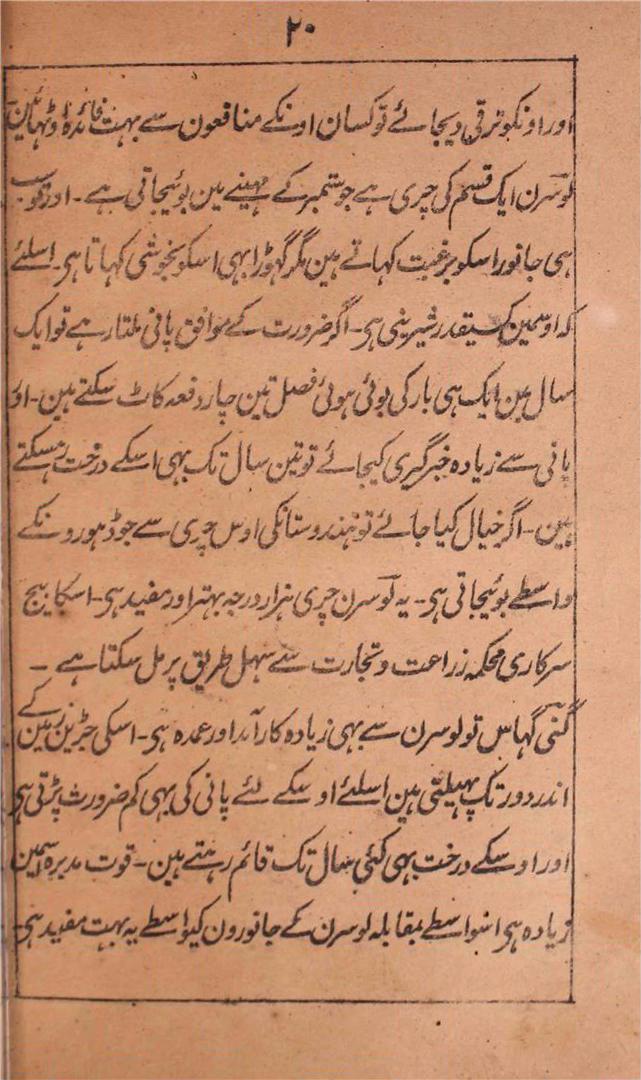 ۲۰
اور اونکو ترقی دیجائے تو کسان اونکے منافعون سے بہت فائدہ اوٹھائین
لوسرن ایک قسم کی چری ہے جو ستمبر کے مہینے مین بوئیجاتی ہے ۔ اور خوب
ہی جانور اسکو برغبت کہاتے ہین مگر گہوڑا بہی اسکو بخوشی کہاتا ہی ۔ اسلئے
کہ اوسمین کسیقدر شیرینی ہی ۔ اگر ضرورت کے موافق پانی ملتا رہے تو ایک
سال مین ایک ہی بار کی بوئی ہوئی فصل تین چار دفعہ کاٹ سکتے ہین ۔ اور
پانی سے زیادہ خبرگیری کیجائے تو تین سال تک بہی اسکے درخت رہسکتے
ہین ۔ اگر خیال کیا جائے تو ہندوستانکی اوس چری سے جو ڈہورونکے
واسطے بوئیجاتی ہی ۔ یہ لوسرن چری ہزار درجہ بہتر اور مفید ہی ۔ اسکا بیج
سرکاری محکمہ زراعت و تجارت سے سہل طریق پر مل سکتا ہے ۔
گنی گہاس تو لوسرن سے بہی زیادہ کارآمد اور عمدہ ہی ۔ اسکی جڑین زمین کے
اندر دور تک پہیلتی ہین اسلئے اوسکے لئے پانی کی بہی کم ضرورت پڑتی ہی
اور اوسکے درخت بہی کئی سال تک قائم رہتے ہین ۔ قوت مدبرہ اسمین
زیادہ ہی اسواسطے بمقابلہ لوسرن کے جانورون کیواسطے یہ بہت مفید ہی ۔